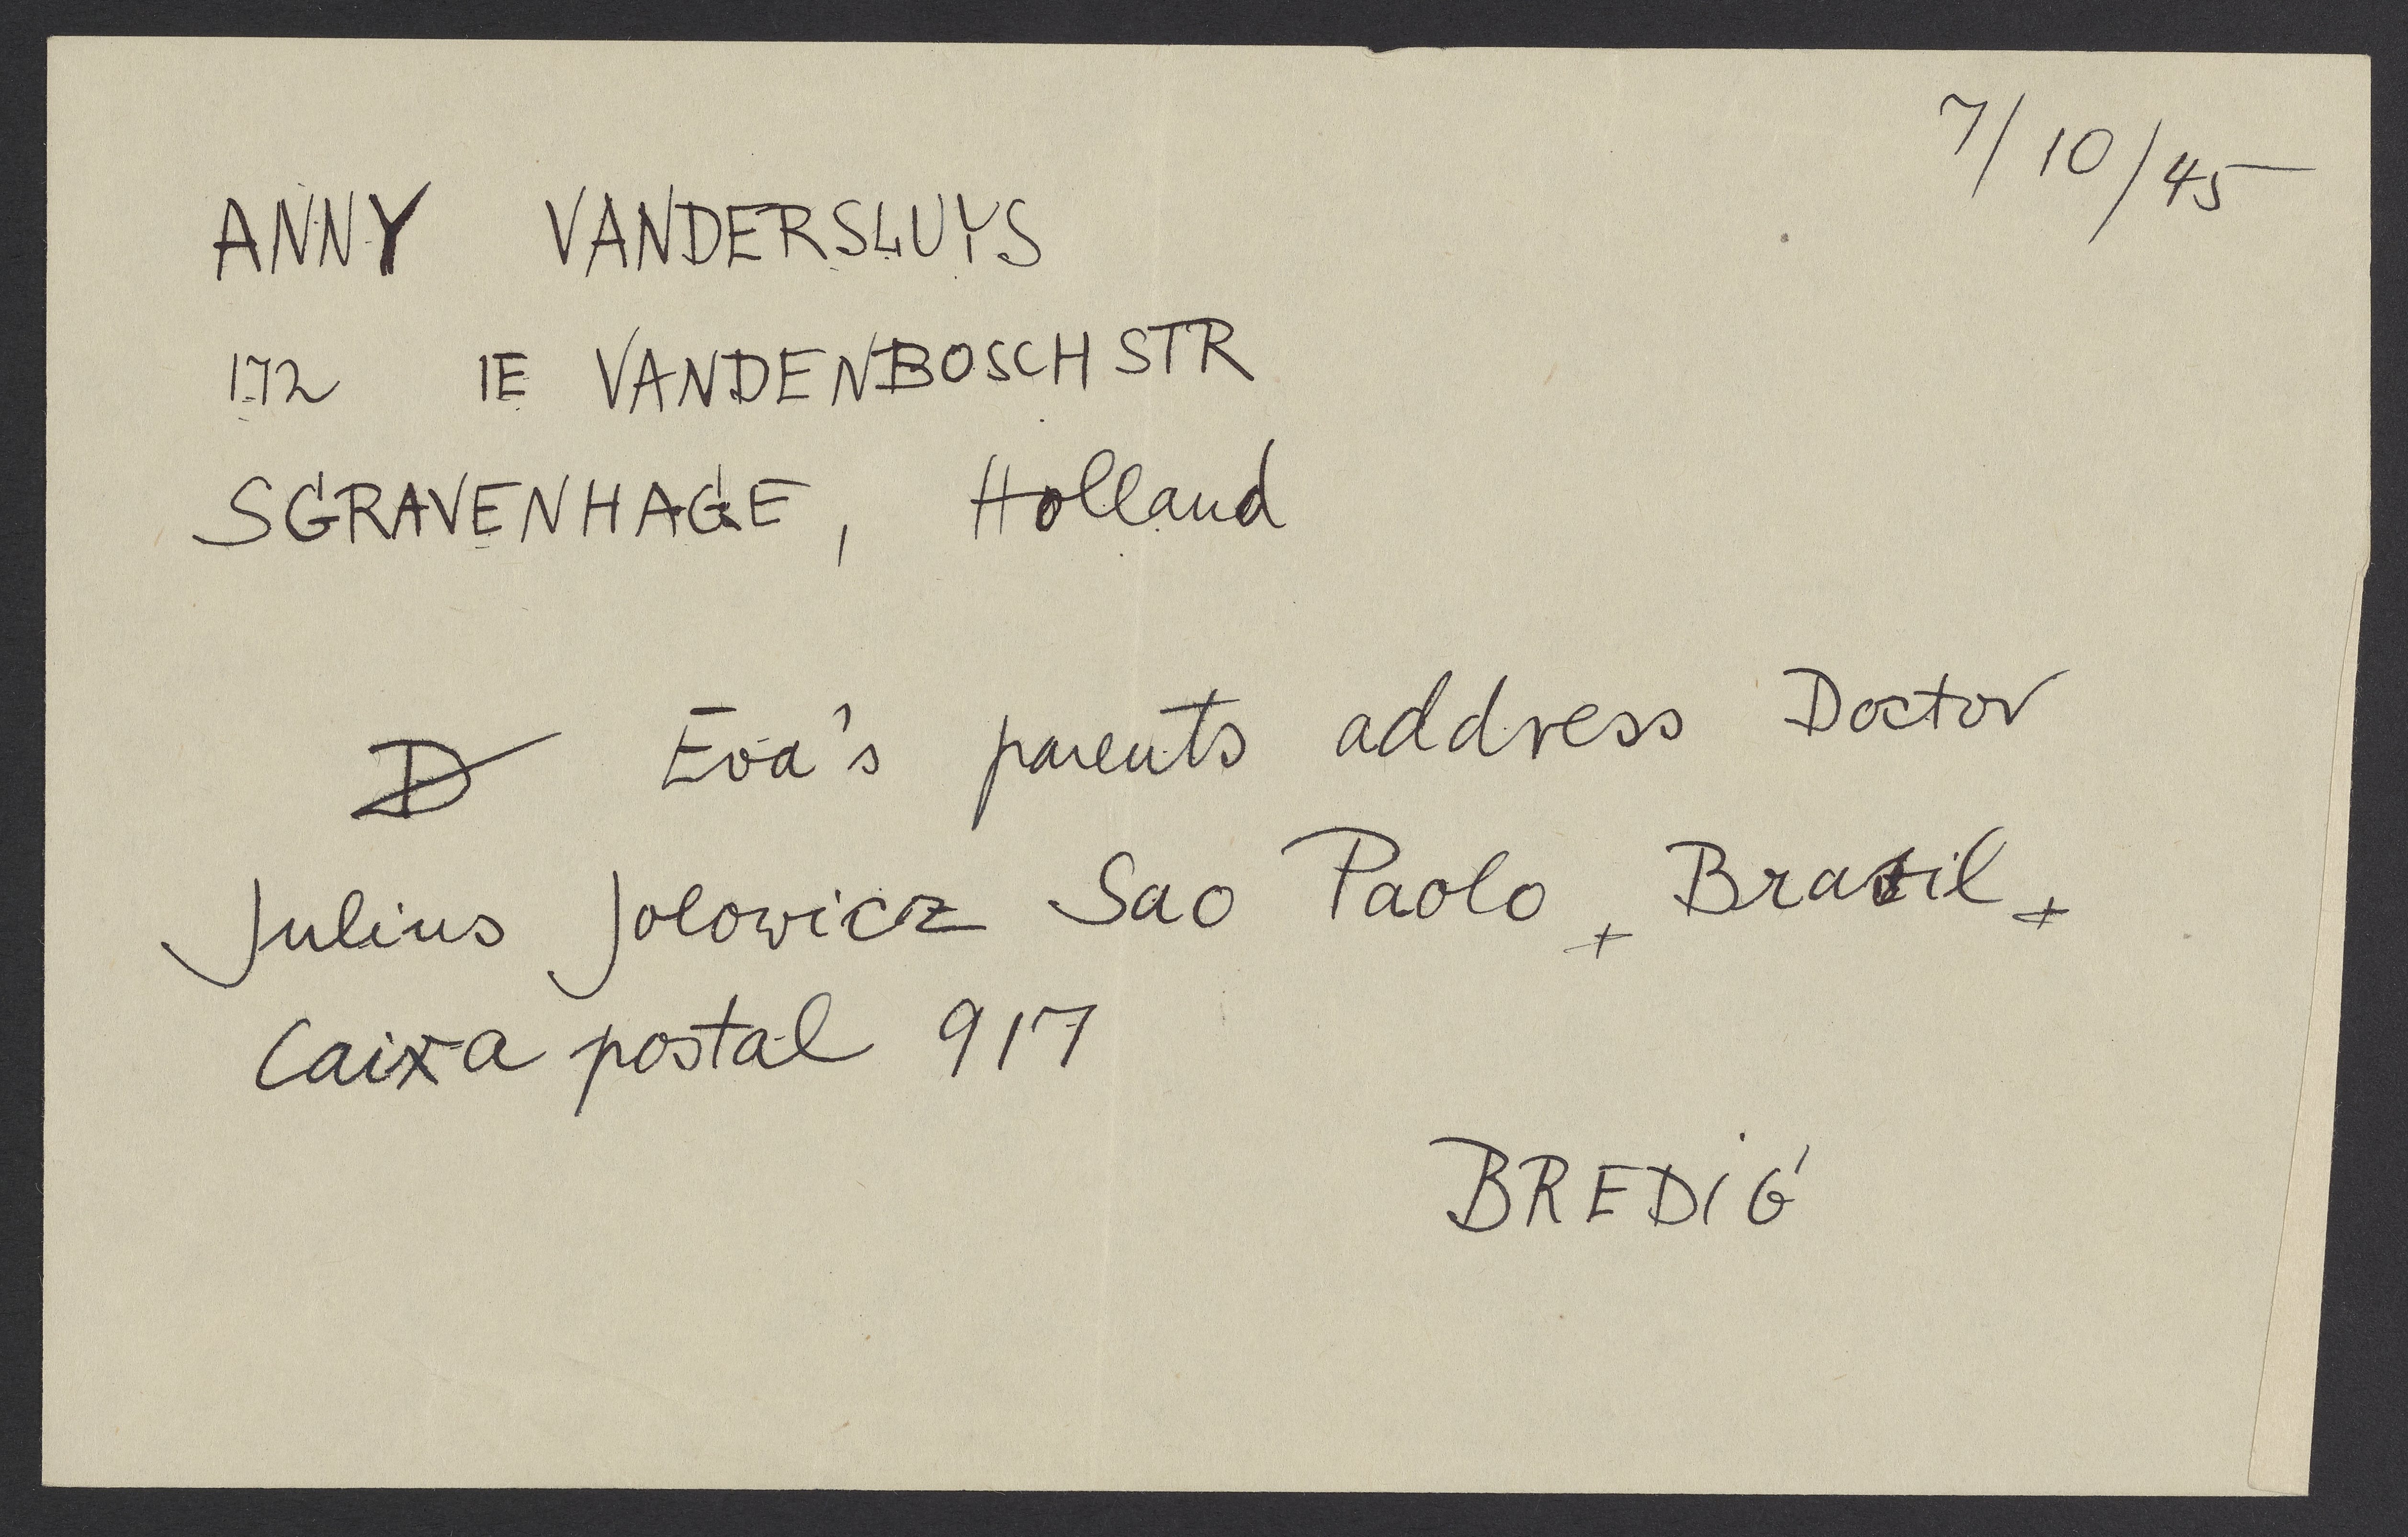 7/10/45
ANNY VANDERSLUYS
172 1E VANDENBOSCHSTR
SGRAVENHAGE, Holland
D Eva's parents address Doctor
Julius Jolowicz Sao Paolo + Brazil +
Caixa postal 917
BREDIG